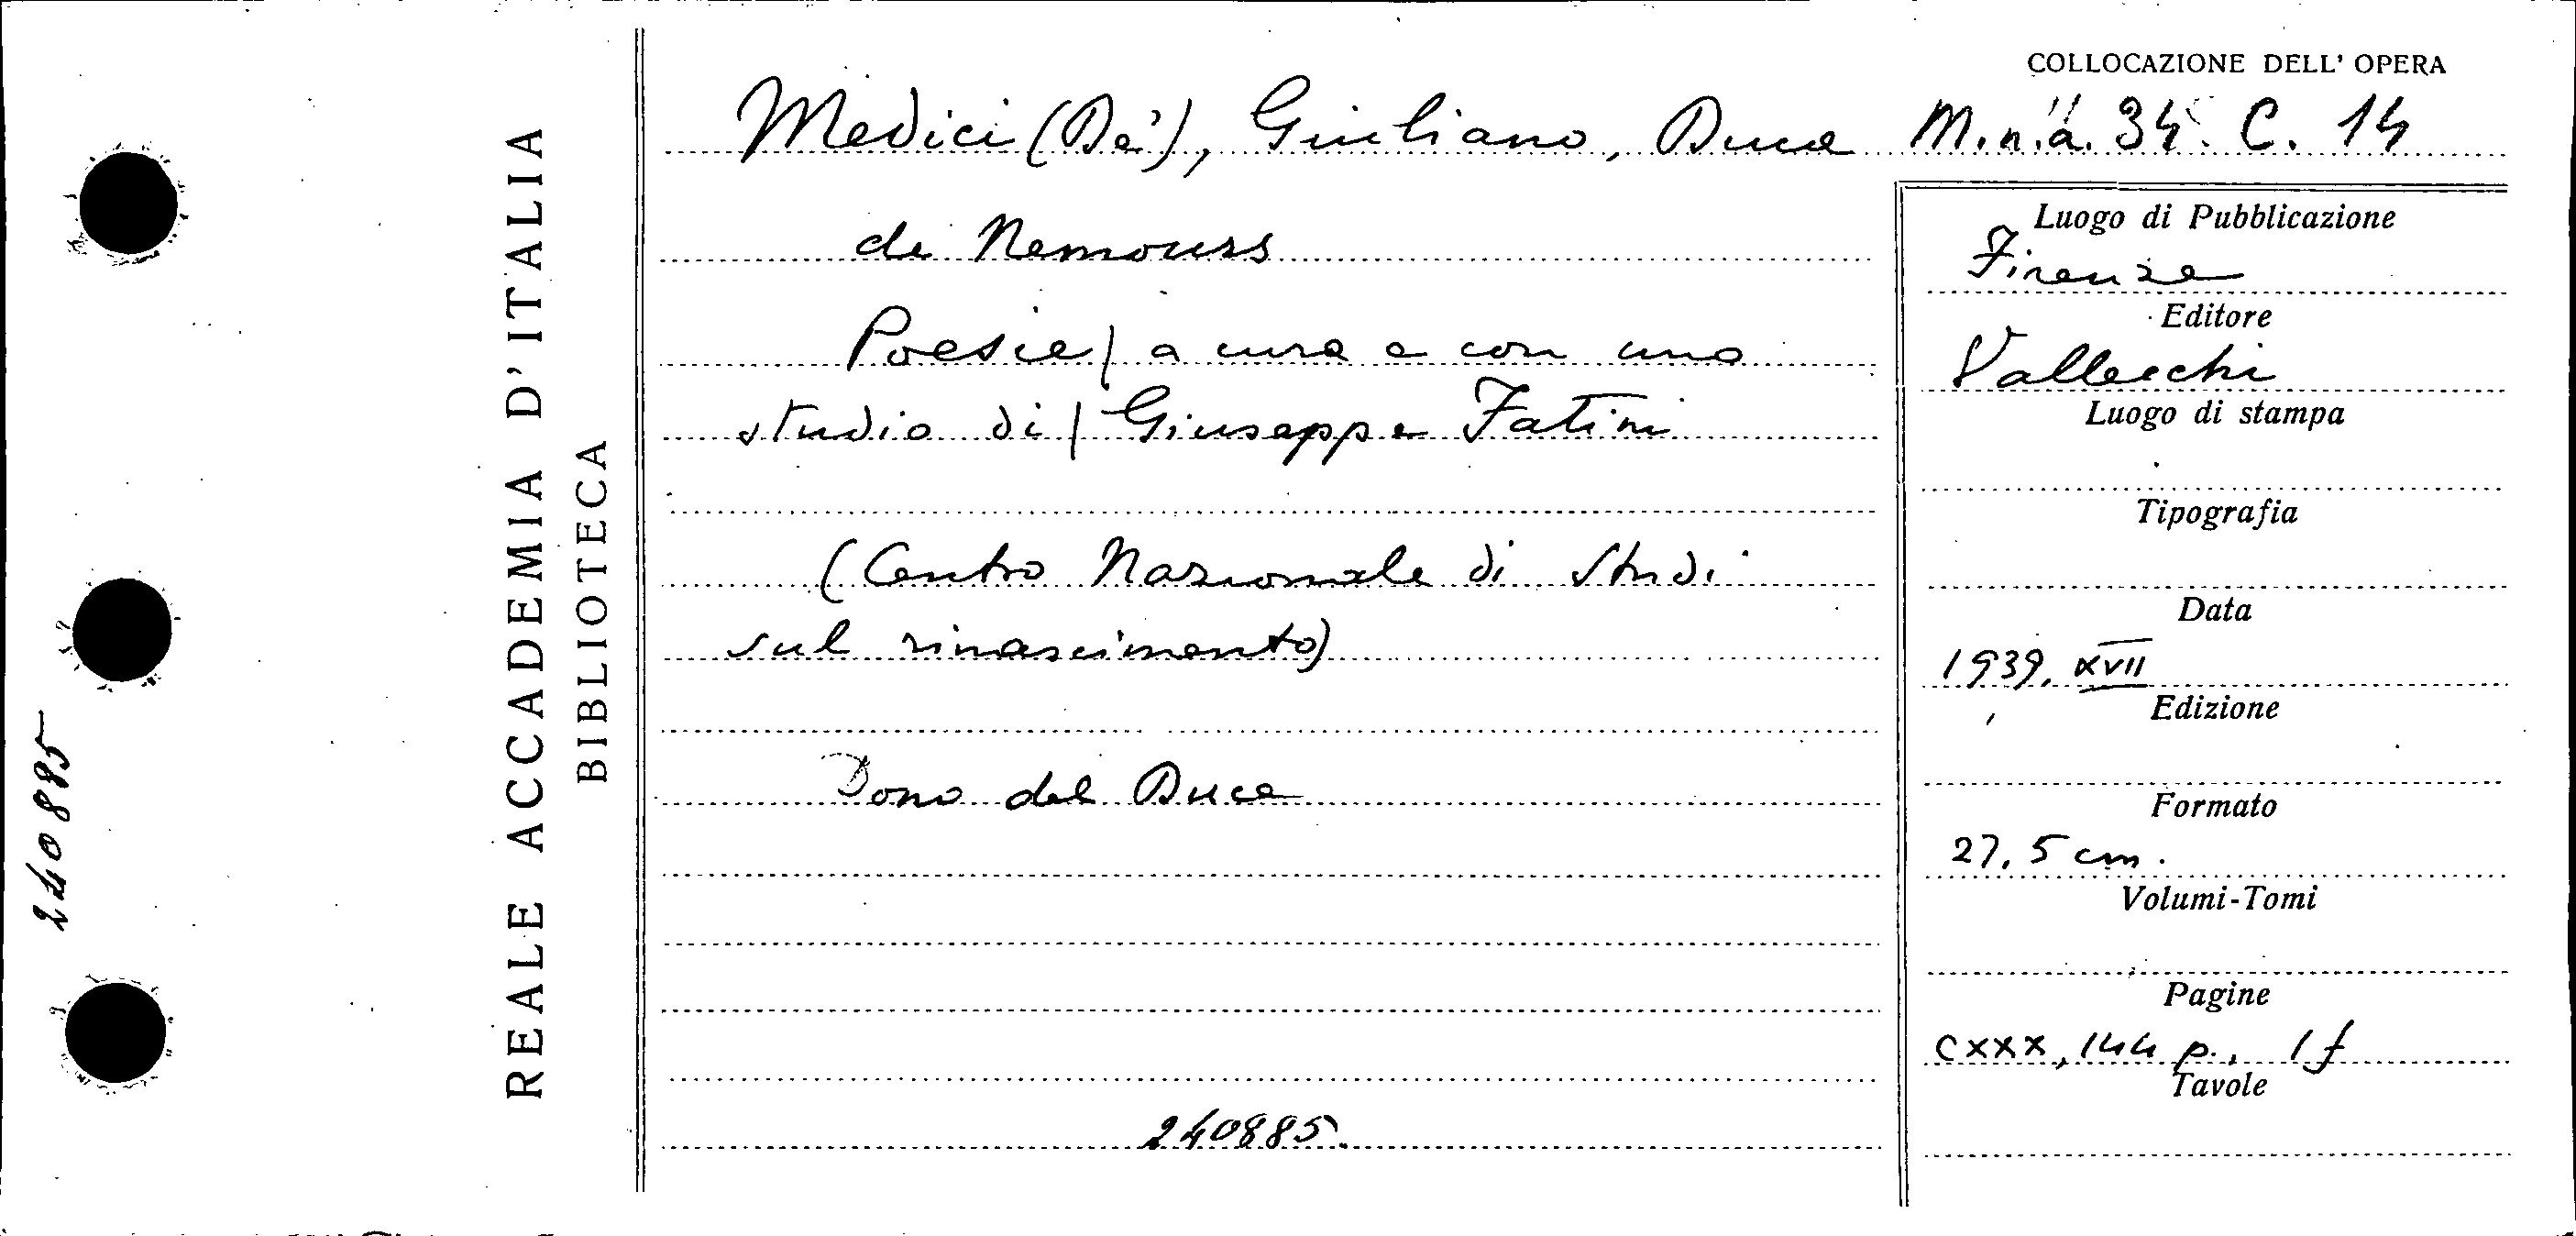 REALE ACCADEMIA D'ITALIA
BIBLIOTECA
240885
COLLOCAZIONE DELL' OPERA
Medici (De'), Giuliano, Duca M.n.a. 34. C. 14
di Nemours
Poesie | a cura e con uno
studio di | Giuseppe Fatini
(Centro Nazionale di Studi
sul rinascimento)
Dono del Duce
240885.
Luogo di Pubblicazione
Firenze
Editore
Vallecchi
Luogo di stampa
Tipografia
Data
1939, XVII
Edizione
Formato
27,5 cm.
Volumi-Tomi
Pagine
CXXX, 144 p., 1 f
Tavole